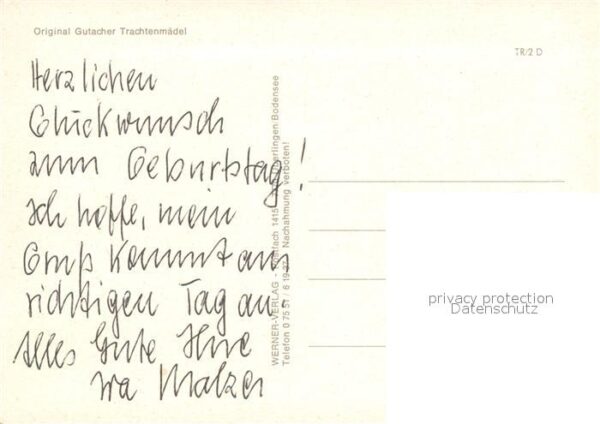 Original Gutacher Trachtenmädel
TR/2 D
Herzlichen
Glückwunsch
zum Geburtstag!
Ich hoffe, mein
Gruß kommt am
richtigen Tag an.
Alles Gute Ihre
WERNER-VERLAG - Postfach 1415 Bodensee
Telefon 0 75 51 / 6 Nachahmung verboten!
privacy protection
Datenschutz